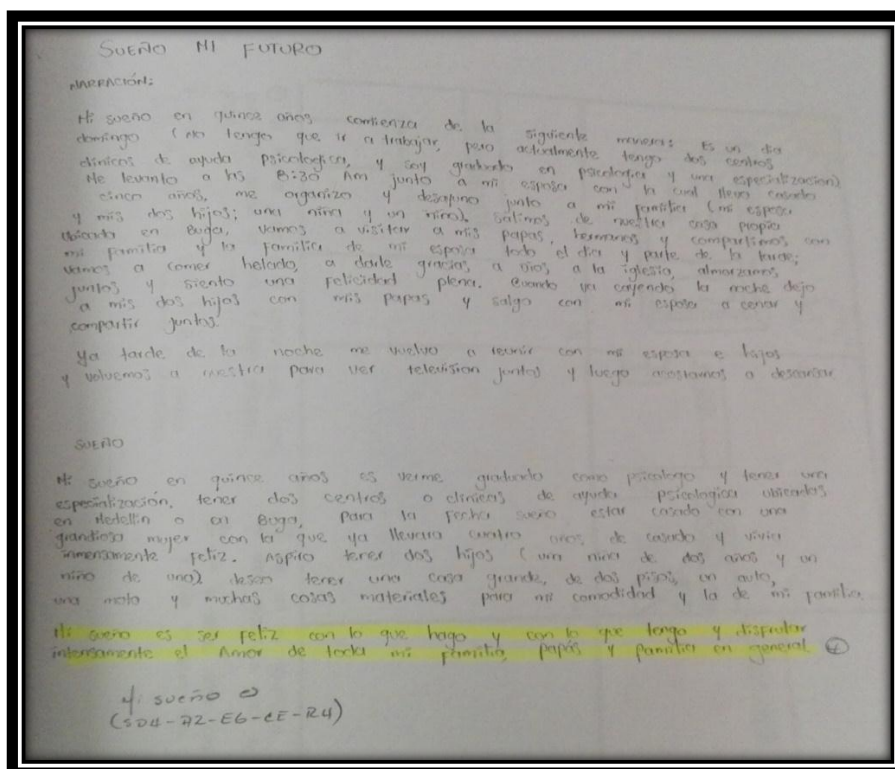 SUEÑO MI FUTURO
NARRACIÓN:
Mi sueño en quince años comienza de la siguiente manera: Es un dia
domingo (no tengo que ir a trabajar, pero actualmente tengo dos centros
clinicos de ayuda psicologica, y soy graduado en psicologia y una especializacion)
Me levanto a las 8:30 Am junto a mi esposa con la cual llevo casado
cinco años, me organizo y desayuno junto a mi familia (mi esposa
y mis dos hijos; una niña y un niño), salimos de nuestra casa propia
ubicada en Buga, vamos a visitar a mis papas, hermanos y compartimos con
mi familia y la familia de mi esposa todo el dia y parte de la tarde;
vamos a comer helado, a darle gracias a Dios a la iglesia, almorzamos
juntos y siento una felicidad plena. Cuando ya cayendo la noche dejo
a mis dos hijos con mis papas y salgo con mi esposa a cenar y
compartir juntos.
Ya tarde de la noche me vuelvo a reunir con mi esposa e hijos
y volvemos a nuestra para ver television juntos y luego acostarnos a descansar
SUEÑO
Mi sueño en quince años es verme graduado como psicologo y tener una
especialización, tener dos centros o clinicas de ayuda psicologica ubicadas
en Medellin o en Buga, Para la fecha sueño estar casado con una
grandiosa mujer con la que ya llevara cuatro años de casado y vivir
inmensamente feliz. Aspiro tener dos hijos (una niña de dos años y un
niño de uno) deseo tener una casa grande, de dos pisos, un auto,
una moto y muchas cosas materiales para mi comodidad y la de mi familia.
Mi sueño es ser feliz con lo que hago y con lo que tengo y disfrutar
intensamente el Amor de toda mi familia, papás y familia en general
Mi sueño
(SD4-A2-E6-CE-R4)